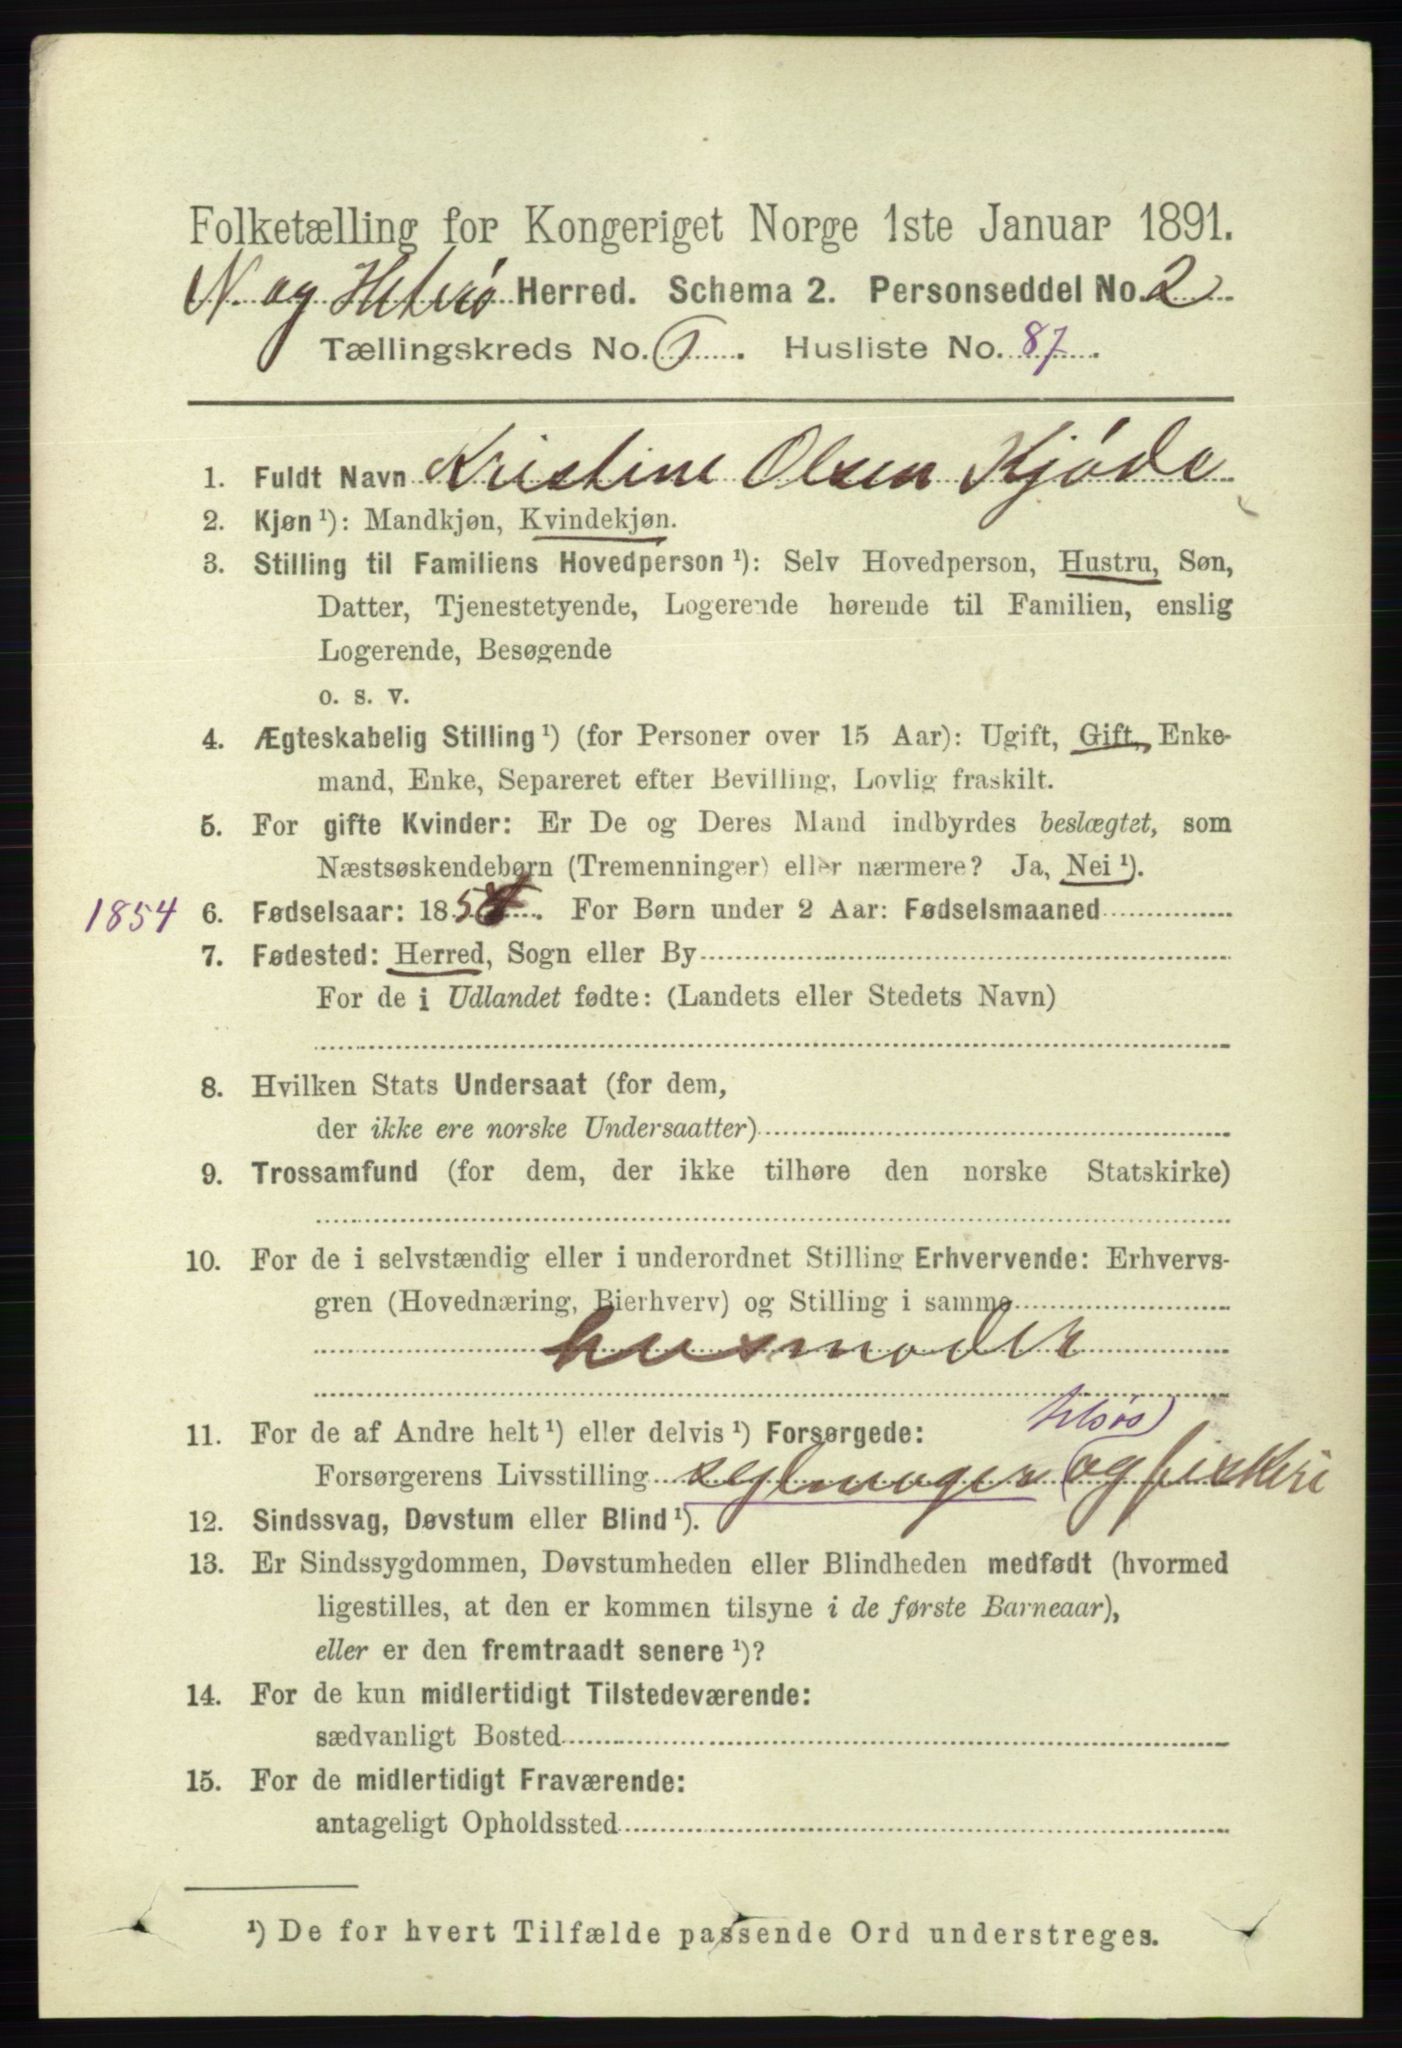 Folketælling for Kongeriget Norge 1ste Januar 1891.
N. og Hiterø Herred. Schema 2. Personseddel No. 2
Tællingskreds No. 1. Husliste No. 87.
1. Fuldt Navn Kristine Olsen Kjøde
2. Kjøn ¹): Mandkjøn, Kvindekjøn.
3. Stilling til Familiens Hovedperson ¹): Selv Hovedperson, Hustru, Søn,
Datter, Tjenestetyende, Logerende hørende til Familien, enslig
Logerende, Besøgende
o. s. v.
4. Ægteskabelig Stilling ¹) (for Personer over 15 Aar): Ugift, Gift, Enke-
mand, Enke, Separeret efter Bevilling, Lovlig fraskilt.
5. For gifte Kvinder: Er De og Deres Mand indbyrdes beslægtet, som
Næstsøskendebørn (Tremenninger) eller nærmere? Ja, Nei ¹).
1854 6. Fødselsaar: 1854. For Børn under 2 Aar: Fødselsmaaned
7. Fødested: Herred, Sogn eller By
For de i Udlandet fødte: (Landets eller Stedets Navn)
8. Hvilken Stats Undersaat (for dem,
der ikke ere norske Undersaatter)
9. Trossamfund (for dem, der ikke tilhøre den norske Statskirke)
10. For de i selvstændig eller i underordnet Stilling Erhvervende: Erhvervs-
gren (Hovednæring, Bierhverv) og Stilling i samme
husmoder
11. For de af Andre helt ¹) eller delvis ¹) Forsørgede:
Forsørgerens Livsstilling seglmager og fiskeri
12. Sindssvag, Døvstum eller Blind ¹).
13. Er Sindssygdommen, Døvstumheden eller Blindheden medfødt (hvormed
ligestilles, at den er kommen tilsyne i de første Barneaar),
eller er den fremtraadt senere ¹)?
14. For de kun midlertidigt Tilstedeværende:
sædvanligt Bosted
15. For de midlertidigt Fraværende:
antageligt Opholdssted
¹) De for hvert Tilfælde passende Ord understreges.